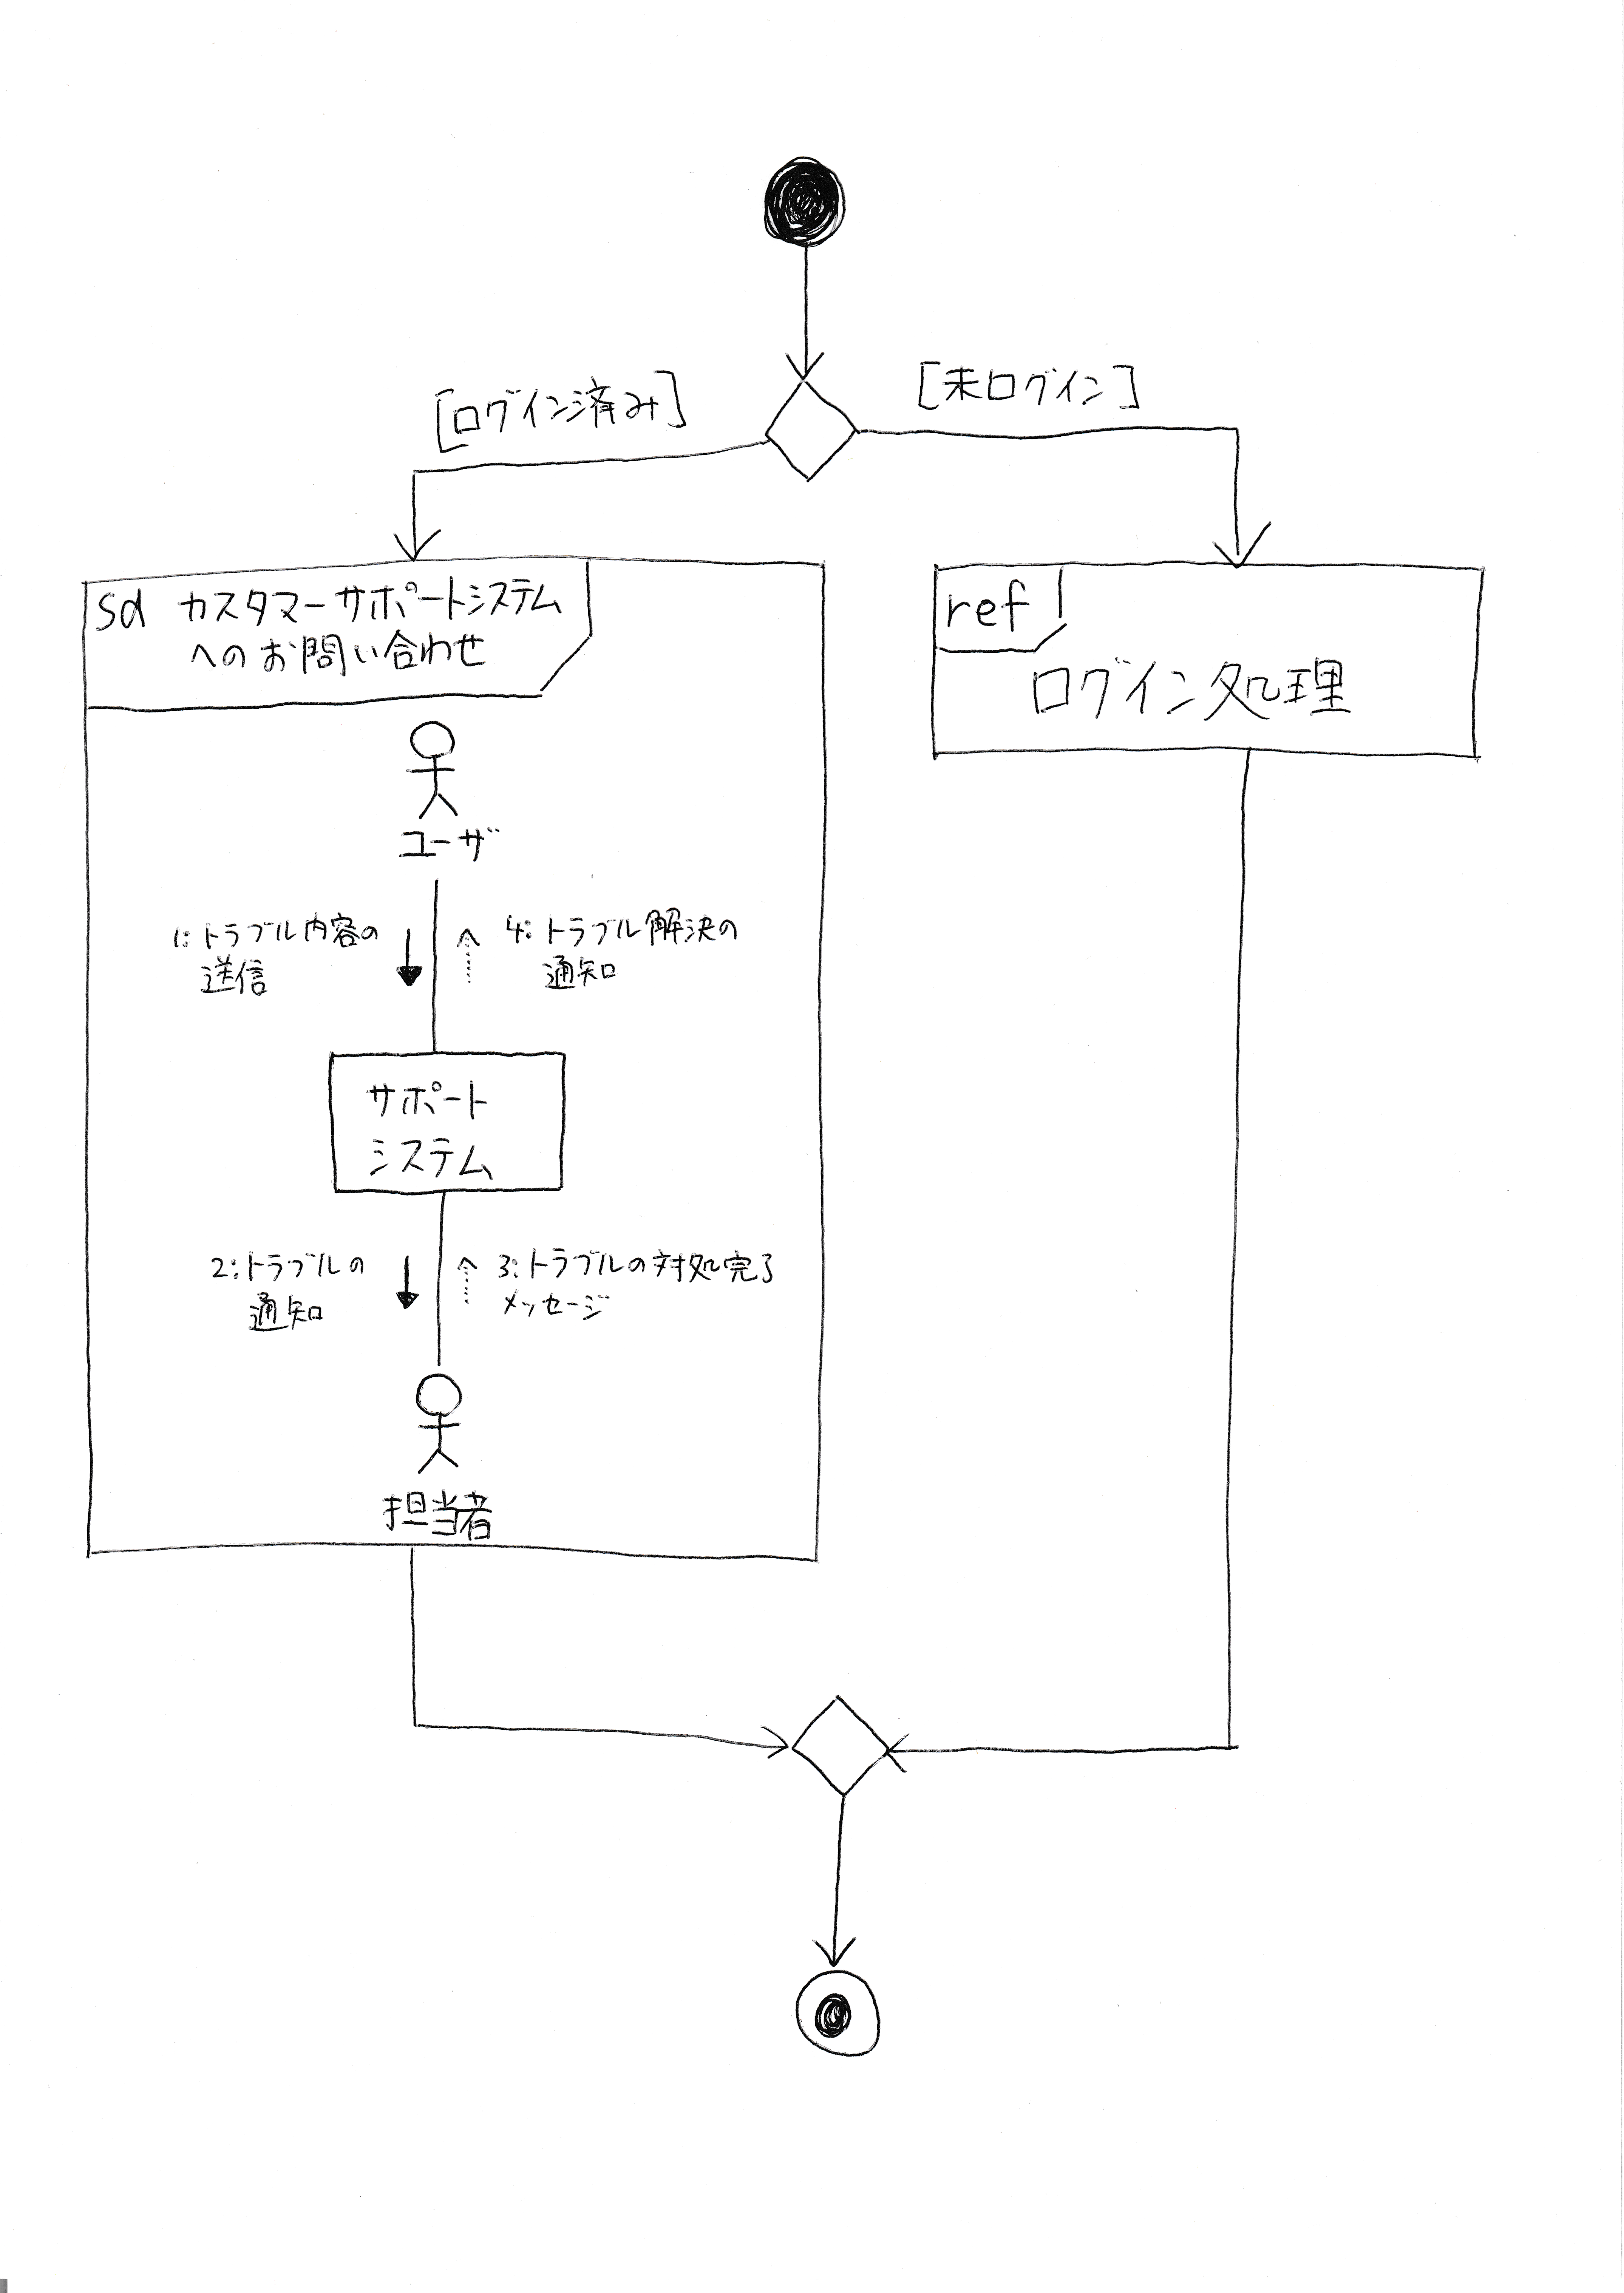 [ログイン済み]
[未ログイン]
sd カスタマーサポートシステム
へのお問い合わせ
ref
ログイン処理
ユーザ
1:トラブル内容の
送信
4:トラブル解決の
通知
サポート
システム
2:トラブルの
通知
3:トラブルの対処完了
メッセージ
担当者